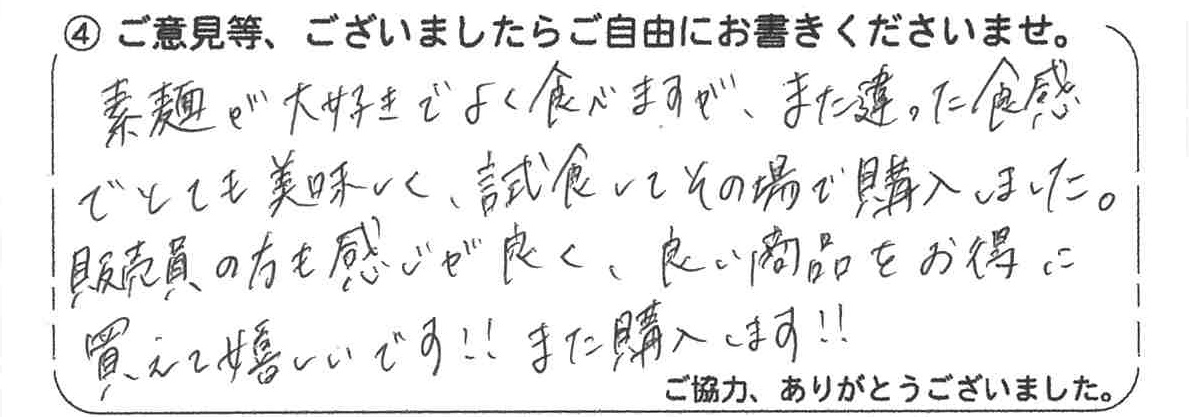 ④ ご意見等、ございましたらご自由にお書きくださいませ。
素麺が大好きでよく食べますが、また違った食感
でとても美味しく、試食してその場で購入しました。
販売員の方も感じが良く、良い商品をお得に
買えて嬉しいです!! また購入します!!
ご協力、ありがとうございました。